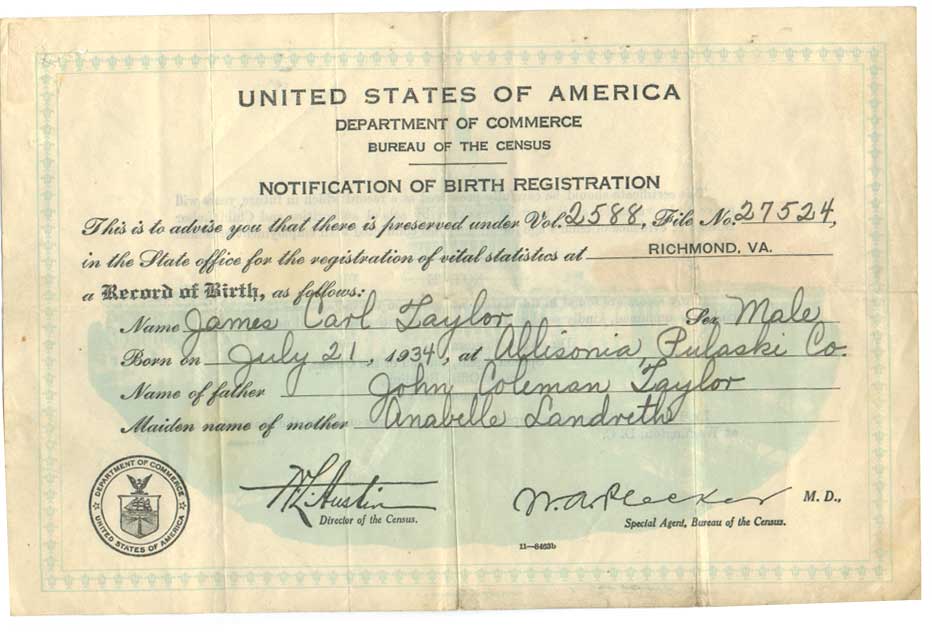 UNITED STATES OF AMERICA
DEPARTMENT OF COMMERCE
BUREAU OF THE CENSUS
NOTIFICATION OF BIRTH REGISTRATION
This is to advise you that there is preserved under Vol. 2588, File No. 27524,
in the State office for the registration of vital statistics at RICHMOND, VA.
a Record of Birth, as follows:
Name James Carl Taylor Sex Male
Born on July 21, 1934, at Allisonia, Pulaski Co.
Name of father John Coleman Taylor
Maiden name of mother Anabelle Landreth
DEPARTMENT OF COMMERCE
UNITED STATES OF AMERICA
W. L. Austin
Director of the Census.
W. A. Plecker M. D.,
Special Agent, Bureau of the Census.
11—8463b